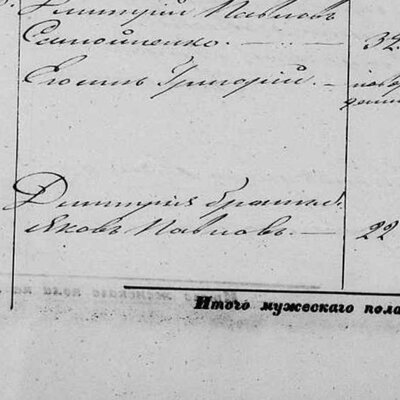 Дмитрий Павловъ
Самойленко. 32.
Его сынъ Григорий. – ново
Дмитрия братъ
Яковъ Павловъ. — 22
Итого мужескаго пола